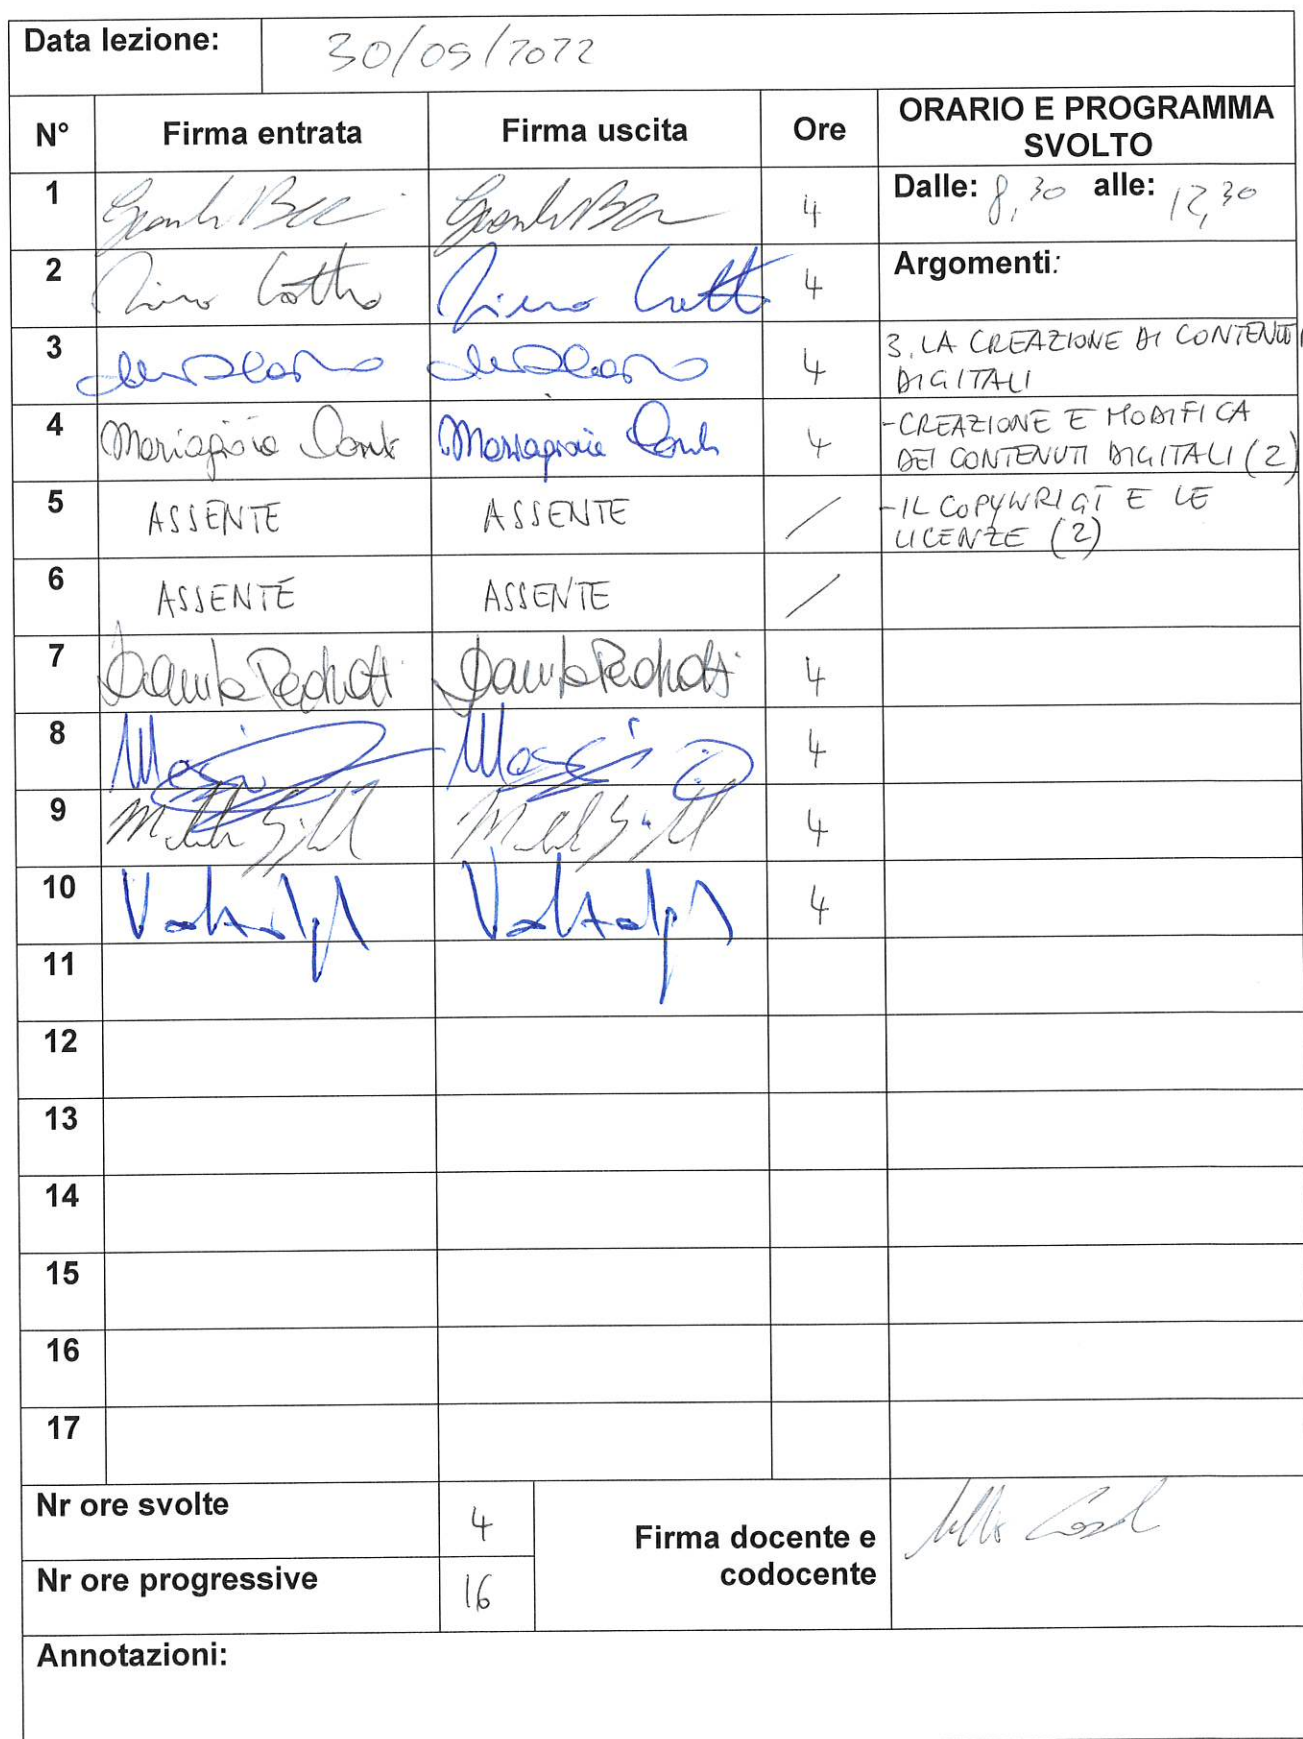 Data lezione: 30/05/2022
N° Firma entrata Firma uscita Ore ORARIO E PROGRAMMA
SVOLTO
1 4 Dalle: 8,30 alle: 12,30
2 4 Argomenti:
3 4 3. LA CREAZIONE DI CONTENUTI
DIGITALI
4 Mariagrazia Conti Mariagrazia Conti 4 -CREAZIONE E MODIFICA
DEI CONTENUTI DIGITALI (2)
5 ASSENTE ASSENTE / -IL COPYWRIGT E LE
LICENZE (2)
6 ASSENTE ASSENTE /
7 4
8 4
9 4
10 4
11
12
13
14
15
16
17
Nr ore svolte 4
Firma docente e
codocente
Nr ore progressive 16
Annotazioni: